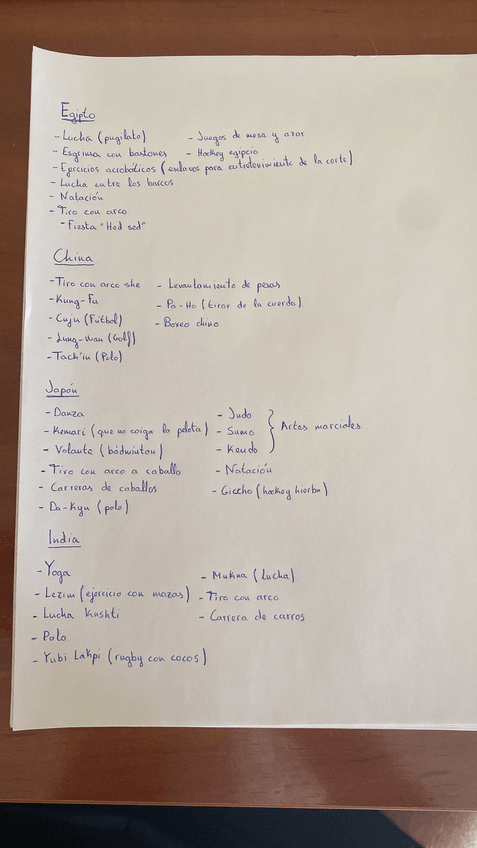 Egipto
- Lucha (pugilato) - Juegos de mesa y azar
- Esgrima con bastones - Hockey egipcio
- Ejercicios acrobáticos (esclavos para entretenimiento de la corte)
- Lucha entre los barcos
- Natación
- Tiro con arco
- Fiesta "Hed sed"
China
- Tiro con arco she - Levantamiento de pesas
- Kung-Fu - Pa-Ho (tirar de la cuerda)
- Cuju (Fútbol) - Boxeo chino
- Lung-Wan (Golf)
- Tach'in (Polo)
Japón
- Danza - Judo
- Kemari (que no caiga la pelota) - Sumo } Artes marciales
- Volante (bádminton) - Kendo
- Tiro con arco a caballo - Natación
- Carreras de caballos - Giccho (hockey hierba)
- Da-Kyu (polo)
India
- Yoga - Mukna (lucha)
- Lezim (ejercicio con mazas) - Tiro con arco
- Lucha Kushti - Carrera de carros
- Polo
- Yubi Lakpi (rugby con cocos)